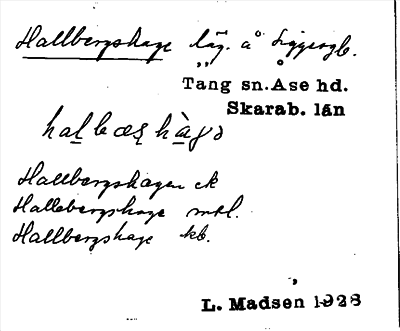 Hallbergshage läg. å Siggesgb.
Tång sn. Åse hd.
Skarab. län
Hallbergshagen ek
Hallebergshage mtl.
Hallbergshage kb.
L. Madsen 1928